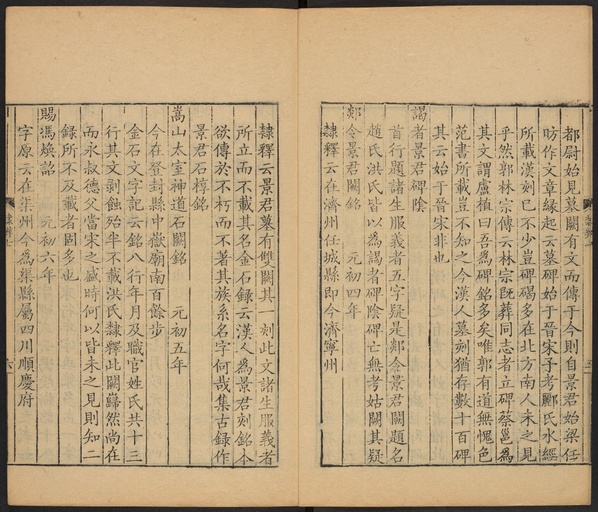 都尉始見墓闕有文而傳于今則自景君始梁任
昉作文章緣起云墓碑始于晉宋子考酈氏水經
所載漢刻已不少豈碑碣多在北方南人未之見
乎然郭林宗傳云林宗既葬同志者立碑蔡邕為
其文謂盧植曰吾為碑銘多矣唯郭有道無愧色
范書所載豈不知之今漢人墓刻猶存數十百碑
其云始于晉宋非也
謁者景君碑陰
首行題諸生服義者五字疑是郯令景君闕題名
趙氏洪氏皆以為謁者碑陰碑亡無考姑闕其疑
郯令景君闕銘 元初四年
隸釋云在濟州任城縣即今濟寧州
隸釋云景君墓有雙闕其一刻此文諸生服義者
所立而不載其名金石錄云漢人為景君刻銘本
欲傳於不朽而不著其族系名字何哉集古錄作
景君石椁銘
嵩山太室神道石闕銘 元初五年
今在登封縣中嶽廟南百餘步
金石文字記云銘八行年月及職官姓氏共十三
行其文剝蝕殆半不載洪氏隸釋此闕巋然尚在
而永叔德父當宋之盛時何以皆未之見則知二
錄所不及載者固多也
賜馮煥詔 元初六年
字原云在渠州今為渠縣屬四川順慶府
隸辨七
六